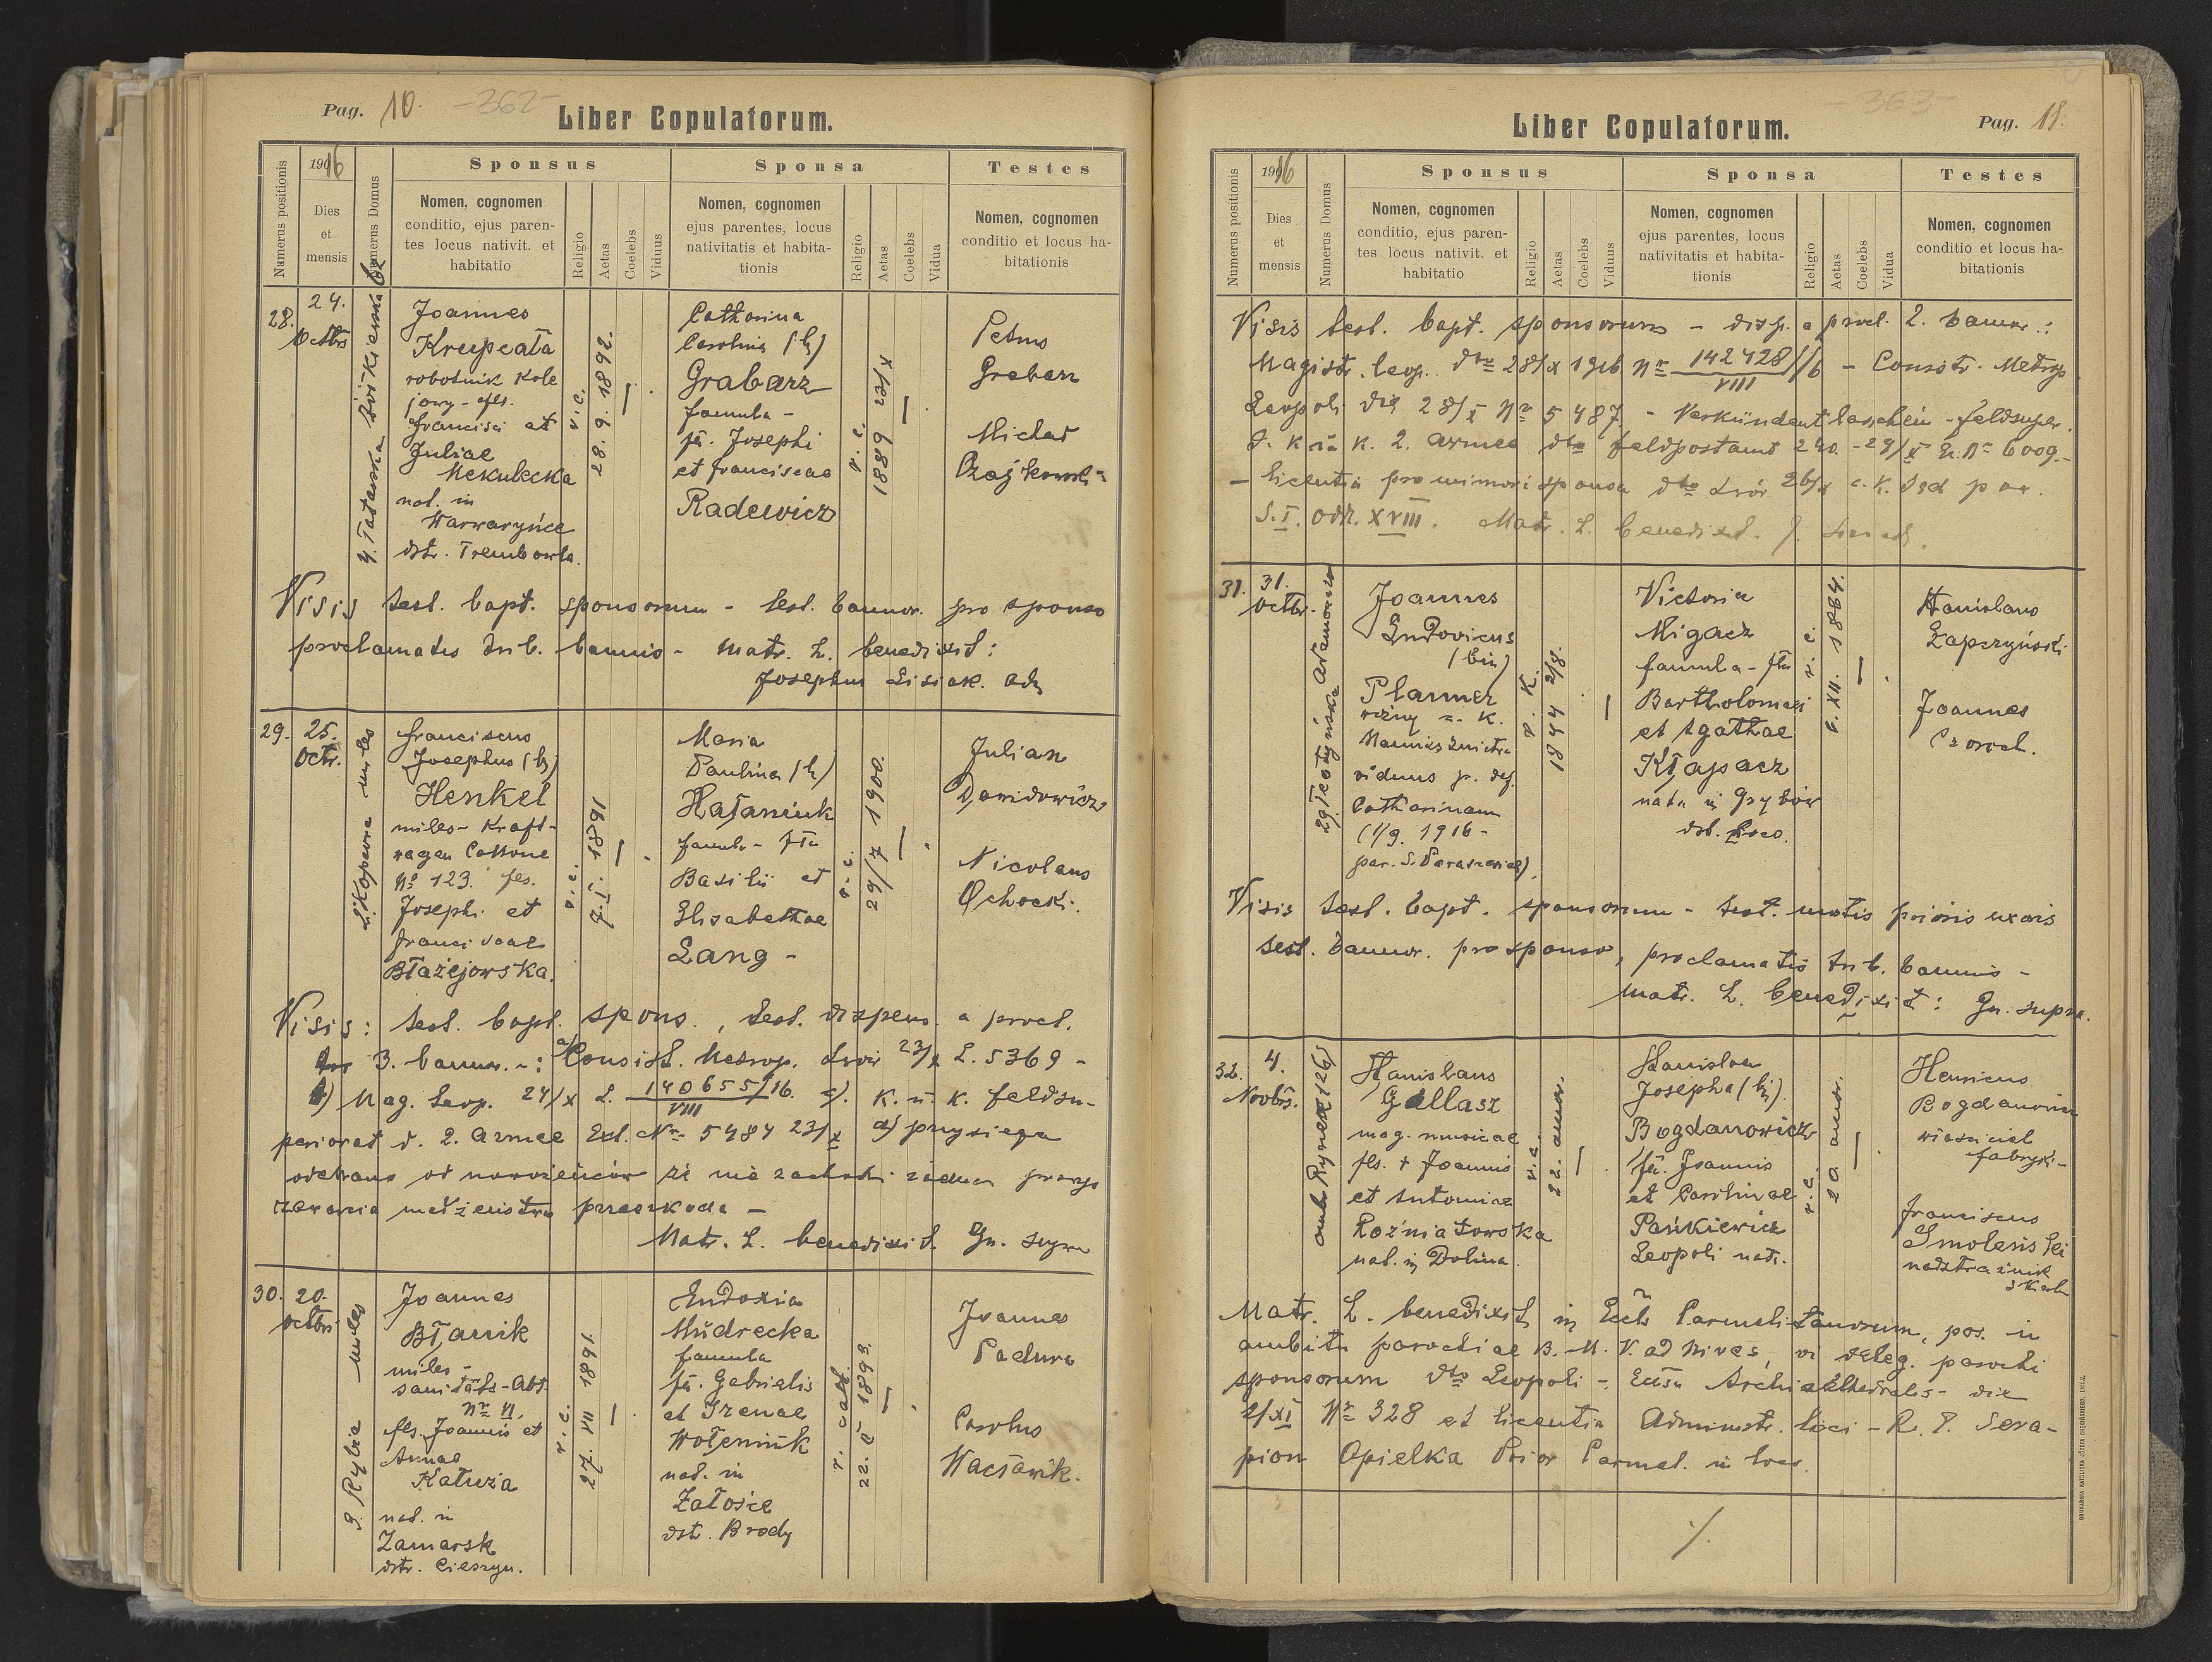 Pag. 10.
-362-
Liber Copulatorum.
Numerus positionis
1916
Dies
et
mensis
Numerus Domus
Sponsus
Nomen, cognomen
conditio, ejus paren-
tes locus nativit. et
habitatio
Religio
Aetas
Coelebs
Viduus
Sponsa
Nomen, cognomen
ejus parentes, locus
nativitatis et habita-
tionis
Religio
Aetas
Coelebs
Vidua
Testes
Nomen, cognomen
conditio et locus ha-
bitationis
28.
24.
Octbris
Joannes
Krupeała
robotnik kole
jowy - fls.
Francisci et
Juliae
Mekulecka
nat. in
Warwaryńce
dstr. Trembowla.
r. c.
28. 9. 1892.
Catharina
Carolina (bi)
Grabarz
famula -
fa. Josephi
et Franciscae
Radewicz
r. c.
1889 23/X
Petrus
Grabarz
Michał
Czajkowski
Visis test. bapt. sponsorum - test. bannor. pro sponso
proclamatis trib. bannis - Matr. L. benedixit:
Josephus Lisiak. adm
29.
25.
Octr.
2. Kopova miles
Franciscus
Josephus (bi)
Henkel
miles - Kraft-
wagen Collone
No 123. fls.
Josephi et
Franciscae
Błażejowska.
r. c.
7. I. 1891
Maria
Paulina (bi)
Hałaniuk
famula - fla
Basilii et
Elisabethae
Lang -
r. c.
29/7 1900.
Julian
Dawidowicz
Nicolaus
Ochocki.
Visis: test. bapt. spons., test. dispens. a procl.
3. bannor. -: a) Consist. Metrop. Lwów 23/X L. 5369 -
b) Mag. Leop. 24/X L. 140655/16. c). K. u. K. Feldsu-
VIII
periorat d. 2. Armee Exl. Nr. 5484 23/X d) przysięga
odebrano od nowożeńców że nie zachodzi żadna przy
zawarcia małżeństwa przeszkoda -
Matr. L. benedixit. Gn. supra
30.
20.
Octbris
9. Rybia miles
Joannes
Błanik
miles -
Sanitäts-Abt.
Nr. VI.
fls. Joannis et
Annae
Kałuża
nat. in
Zamarsk
dstr. Cieszyn.
r. c.
27. VII 1891.
Eudoxia
Mudrecka
famula
fa. Gabrielis
et Irenae
Wołeniuk
nat. in
Załośce
dstr. Brody
r. cath.
22. II 1893.
Joannes
Padura
Carolus
Wacławik.
-363-
Liber Copulatorum.
Pag. 11.
Numerus positionis
1916
Dies
et
mensis
Numerus Domus
Sponsus
Nomen, cognomen
conditio, ejus paren-
tes locus nativit. et
habitatio
Religio
Aetas
Coelebs
Viduus
Sponsa
Nomen, cognomen
ejus parentes, locus
nativitatis et habita-
tionis
Religio
Aetas
Coelebs
Vidua
Testes
Nomen, cognomen
conditio et locus ha-
bitationis
Visis test. bapt. sponsorum - disp. a procl. 2. bannor.:
Magistr. Leop. dto 28/X 1916 Nr 142428/16 - Consstr. Metrop.
VIII
Leopoli die 28/X Nr 5487. - Verkündentlasschein - Feldsuper.
d. k u k. 2. Armee dto Feldpostamt 240. - 29/X E. Nr 6009. -
- licentia pro minori sponsa dto Lwów 26/X c. k. Sąd pow.
S. I. odz. XVIII. Matr. L. benedixit. J.
31.
31.
Octbr.
Joannes
Ludovicus
(bin)
Planner
woźny c. k.
viduus p. def.
Catharinam
(1/9. 1916 -
par. S. Paraszewiae)
r. k.
1844 2/8.
Victoria
Migacz
famula - fla
Bartholomaei
et Agathae
Kłapacz
nata in Grybów
dst. loco.
r. c.
6. XII. 1864.
Stanislaus
Łapczyński
Joannes
Czorech.
Visis test. bapt. sponsorum - test. mortis prioris uxoris
test. bannor. pro sponso, proclamatis trib. bannis -
Matr. L. benedixit: Gn. supra.
32.
4.
Novbris.
ambo Rynek 126/
Stanislaus
Gallasz
mag. musicae
fls. + Joannis
et Antoniae
Rożniatowska
nat. in Dolina.
r. c.
22. annor.
Stanislaa
Josepha (bi)
Bogdanowicz
fa. Joannis
et Carolinae
Pańkiewicz
Leopoli nata.
r. c.
20. annor.
Henricus
Bogdanowicz
właściciel
fabryki -
Franciscus
Smoleński
nadstrażnik
skarb
Matr. L. benedixit in Eccl. Carmelitanorum, pos. in
ambitu parochiae B. M. V. ad Nives, vi deleg. parochi
sponsorum dto Leopoli - Archicathedralis - die
2/XI Nr 328 et licentia Administr. loci - R. P. Sera-
pion Opielka Prior Carmel. in loco.